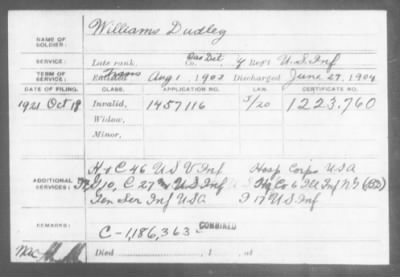 Williams Dudley
NAME OF SOLDIER:
SERVICE:
Late rank, Cas Det
Co. 4 Reg't U.S. Inf
TERM OF SERVICE:
Enlisted Trans Aug 1, 1902 Discharged June 27, 1904
DATE OF FILING. CLASS. APPLICATION NO. LAW. CERTIFICATE NO.
1921 Oct 18 Invalid, 1457116 1223,760
Widow,
Minor,
H & C 46 US V Inf Hosp Corps USA
ADDITIONAL SERVICES: 10, C 27 US Inf Hq Co 6 Ill Inf N.G.
Gen Ser Inf USA F 17 US Inf
REMARKS: C-1,186,363 COMBINED
Died , 1 , at